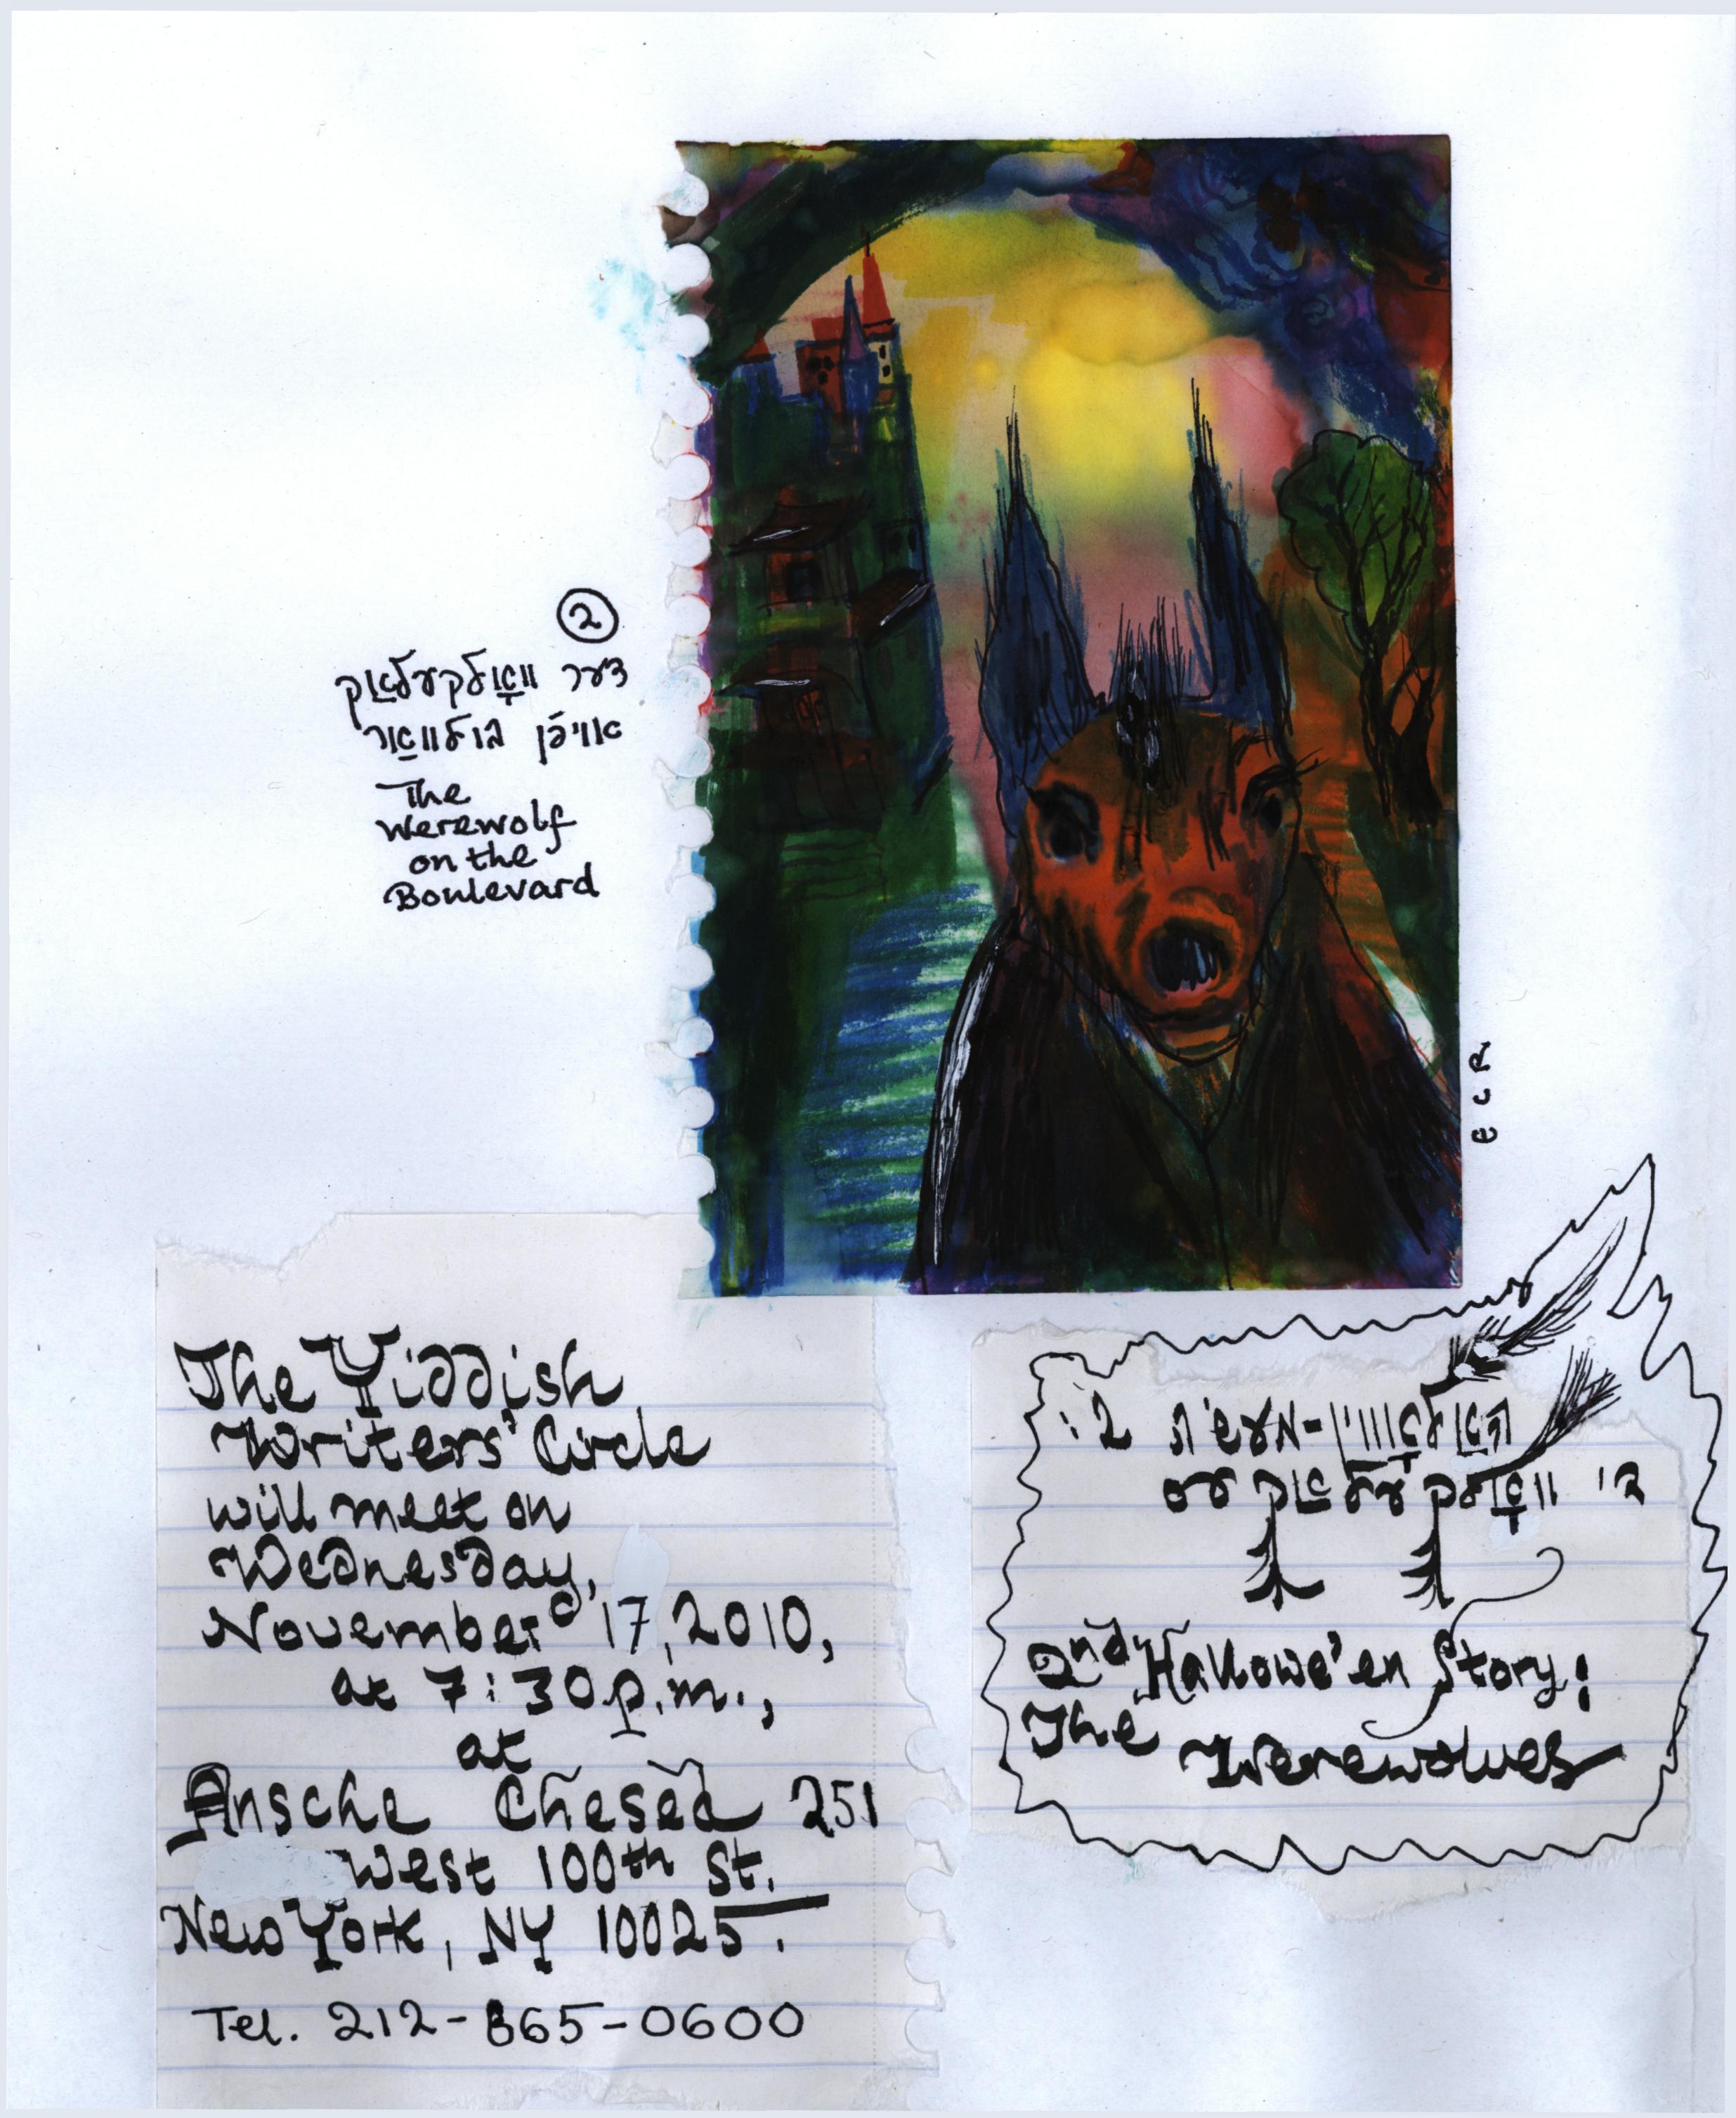 2
דער וואָלקעלאַק
אויפֿן בולוואַר
The
Werewolf
on the
Boulevard
ecR
The Yiddish
Writers' Circle
will meet on
Wednesday,
November 17, 2010,
at 7:30 p.m.,
at
Ansche Chesed 251
West 100th St.
New York, NY 10025.
Tel. 212-865-0600
האַלאָווין-מעשׂה 2:
די וואָלקעלאַקעס
2nd Hallowe'en Story:
The
Werewolves